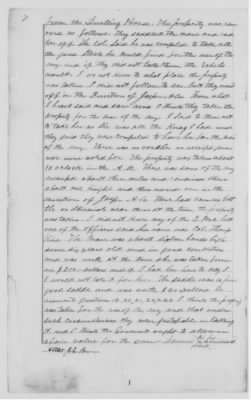 from the Dwelling House. The property was re-
moved as follows. They saddled the mare and rode
her off. The Col. said he was compelled to take all
the good Stock he could find for the use of the
army and if they did not take them the rebels
would. I do not know to what place the property
was taken. I did not follow to see but they went
off in the direction of Jasper Ala. From what
I heard said and saw done I think they taken the
property for the use of the army. I said to them not
to take her as she was all the thing I had and
they said they was compelled to have her for the use
of the army. There was no voucher or receipt given
nor were asked for. The property was taken about
10 oclock in the A.M. There was some of the army
encamped about three miles and remained there
about one night and then moved on in the
direction of Jasper Ala. There had been no bat-
tle or skirmish near there at the time the property
was taken. I did not know any of the U.S. Army but
one of the officers said his name was Col.
The Mare was about fifteen hands high
some six years old and in good condition
and was worth at the time she was taken from
me $200 dollars and if I had her here to day I
would not take it for her. The saddle was a
good saddle and was worth $20 dollars. In
answer to questions
was taken for the use of the army and that under
such circumstances they were justifiable in taking
it and I think the Government ought to allow me
a fair value for the same. Samuel
Attest